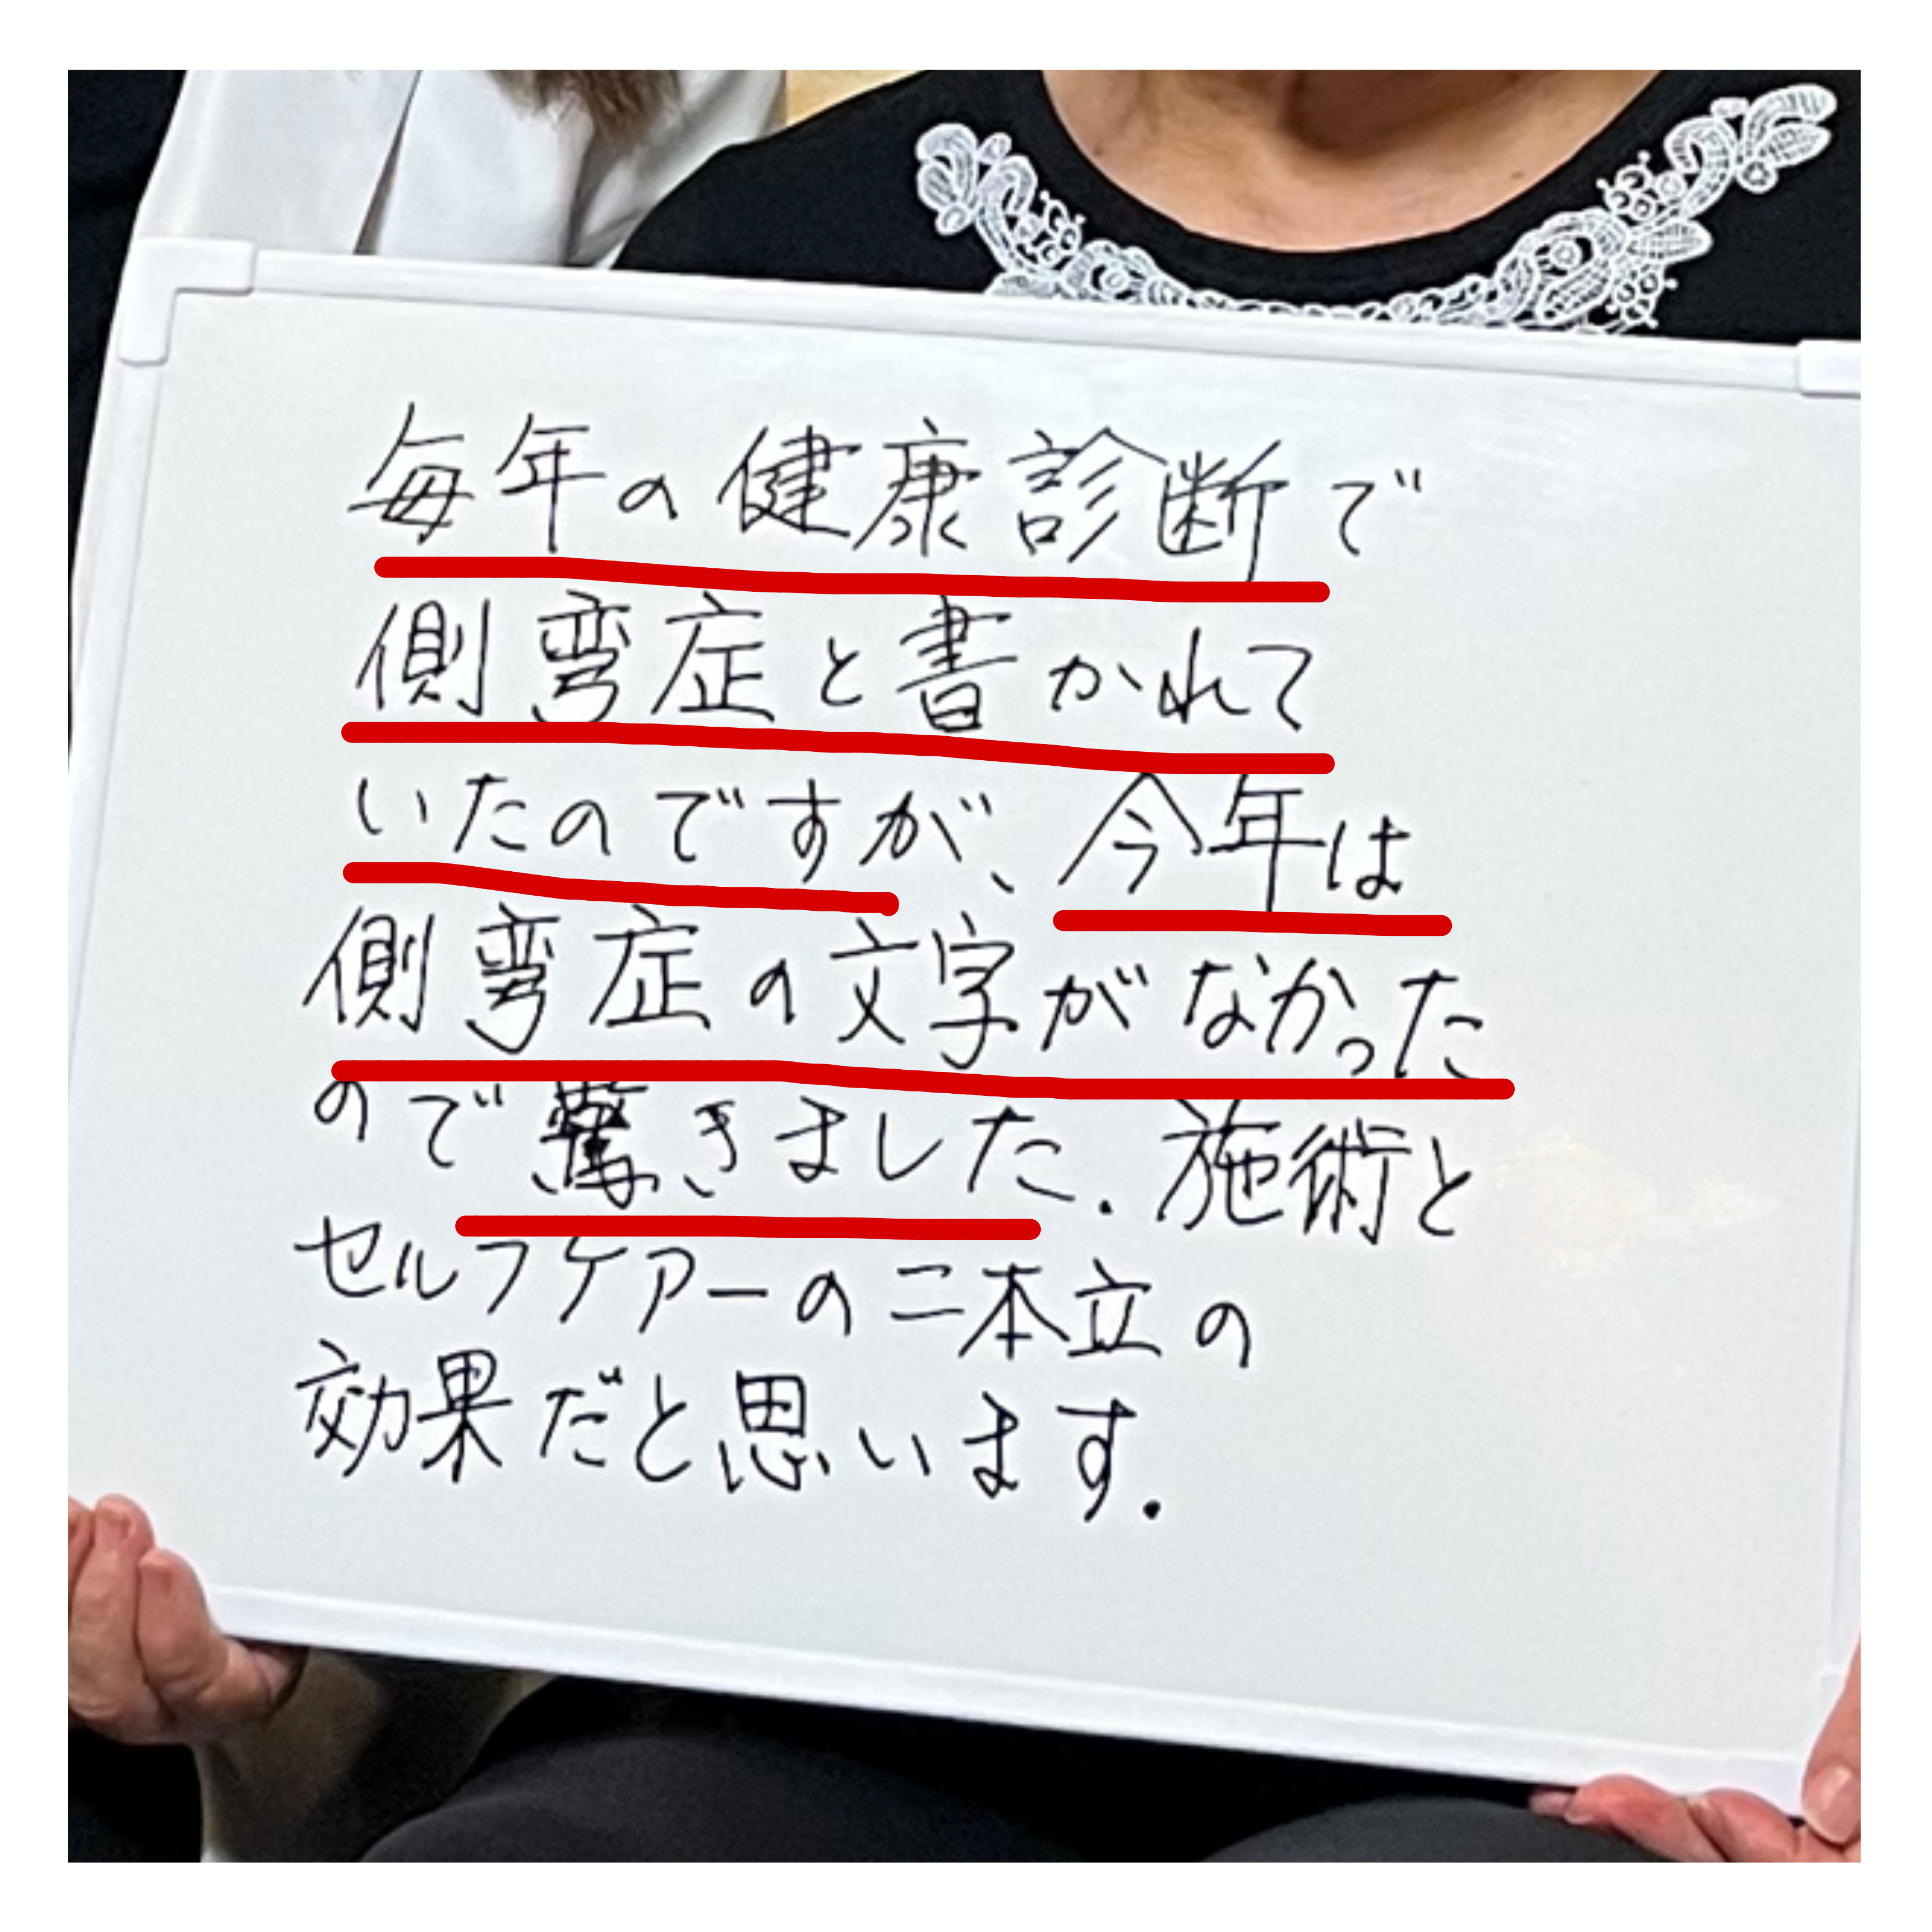 毎年の健康診断で
側弯症と書かれて
いたのですが、今年は
側弯症の文字がなかった
ので驚きました.施術と
セルフケアーの二本立の
効果だと思います.